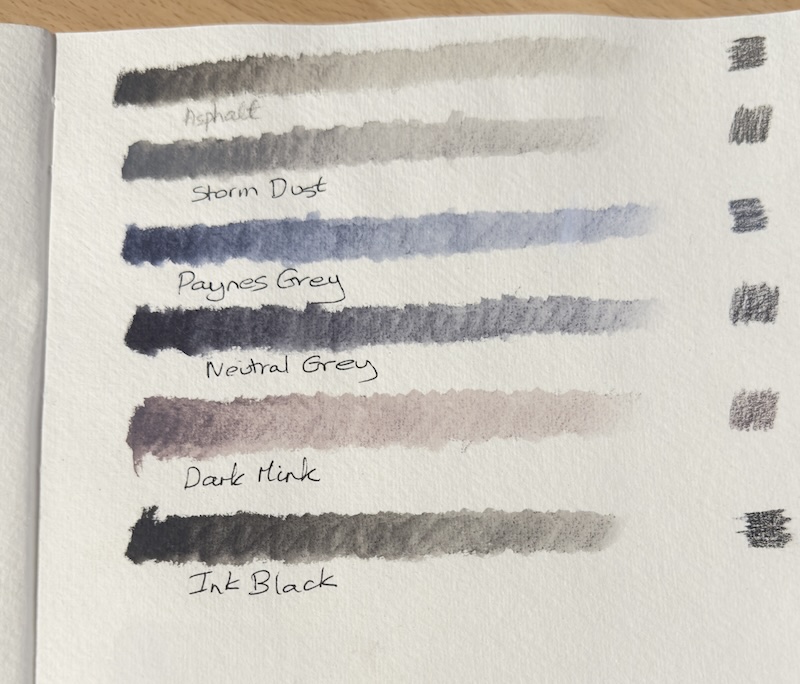 Asphalt
Storm Dust
Paynes Grey
Neutral Grey
Dark Mink
Ink Black